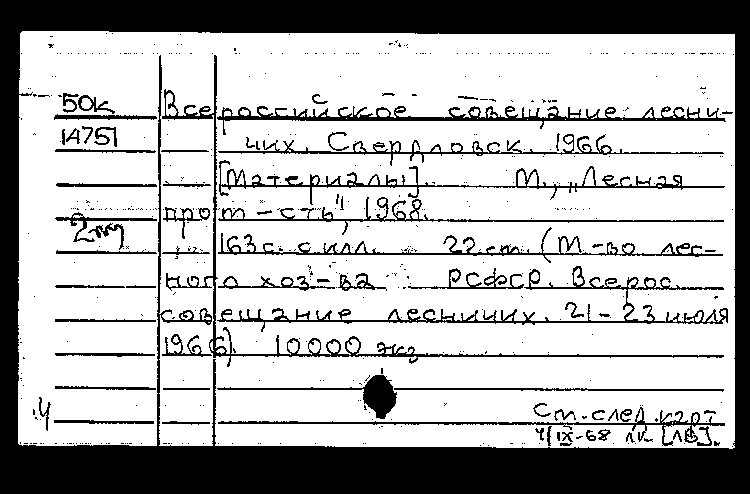 50к Всероссийское совещание лесни-
14751 чих. Свердловск. 1966.
[Материалы]. М., „Лесная
пром-сть", 1968.
2 163 с. с илл. 22 см. (М-во лес-
ного хоз-ва РСФСР. Всерос.
совещание лесничих. 21-23 июля
1966). 10000 экз
См. след. карт
.4 4/IX-68 ЛК [ЛВ].